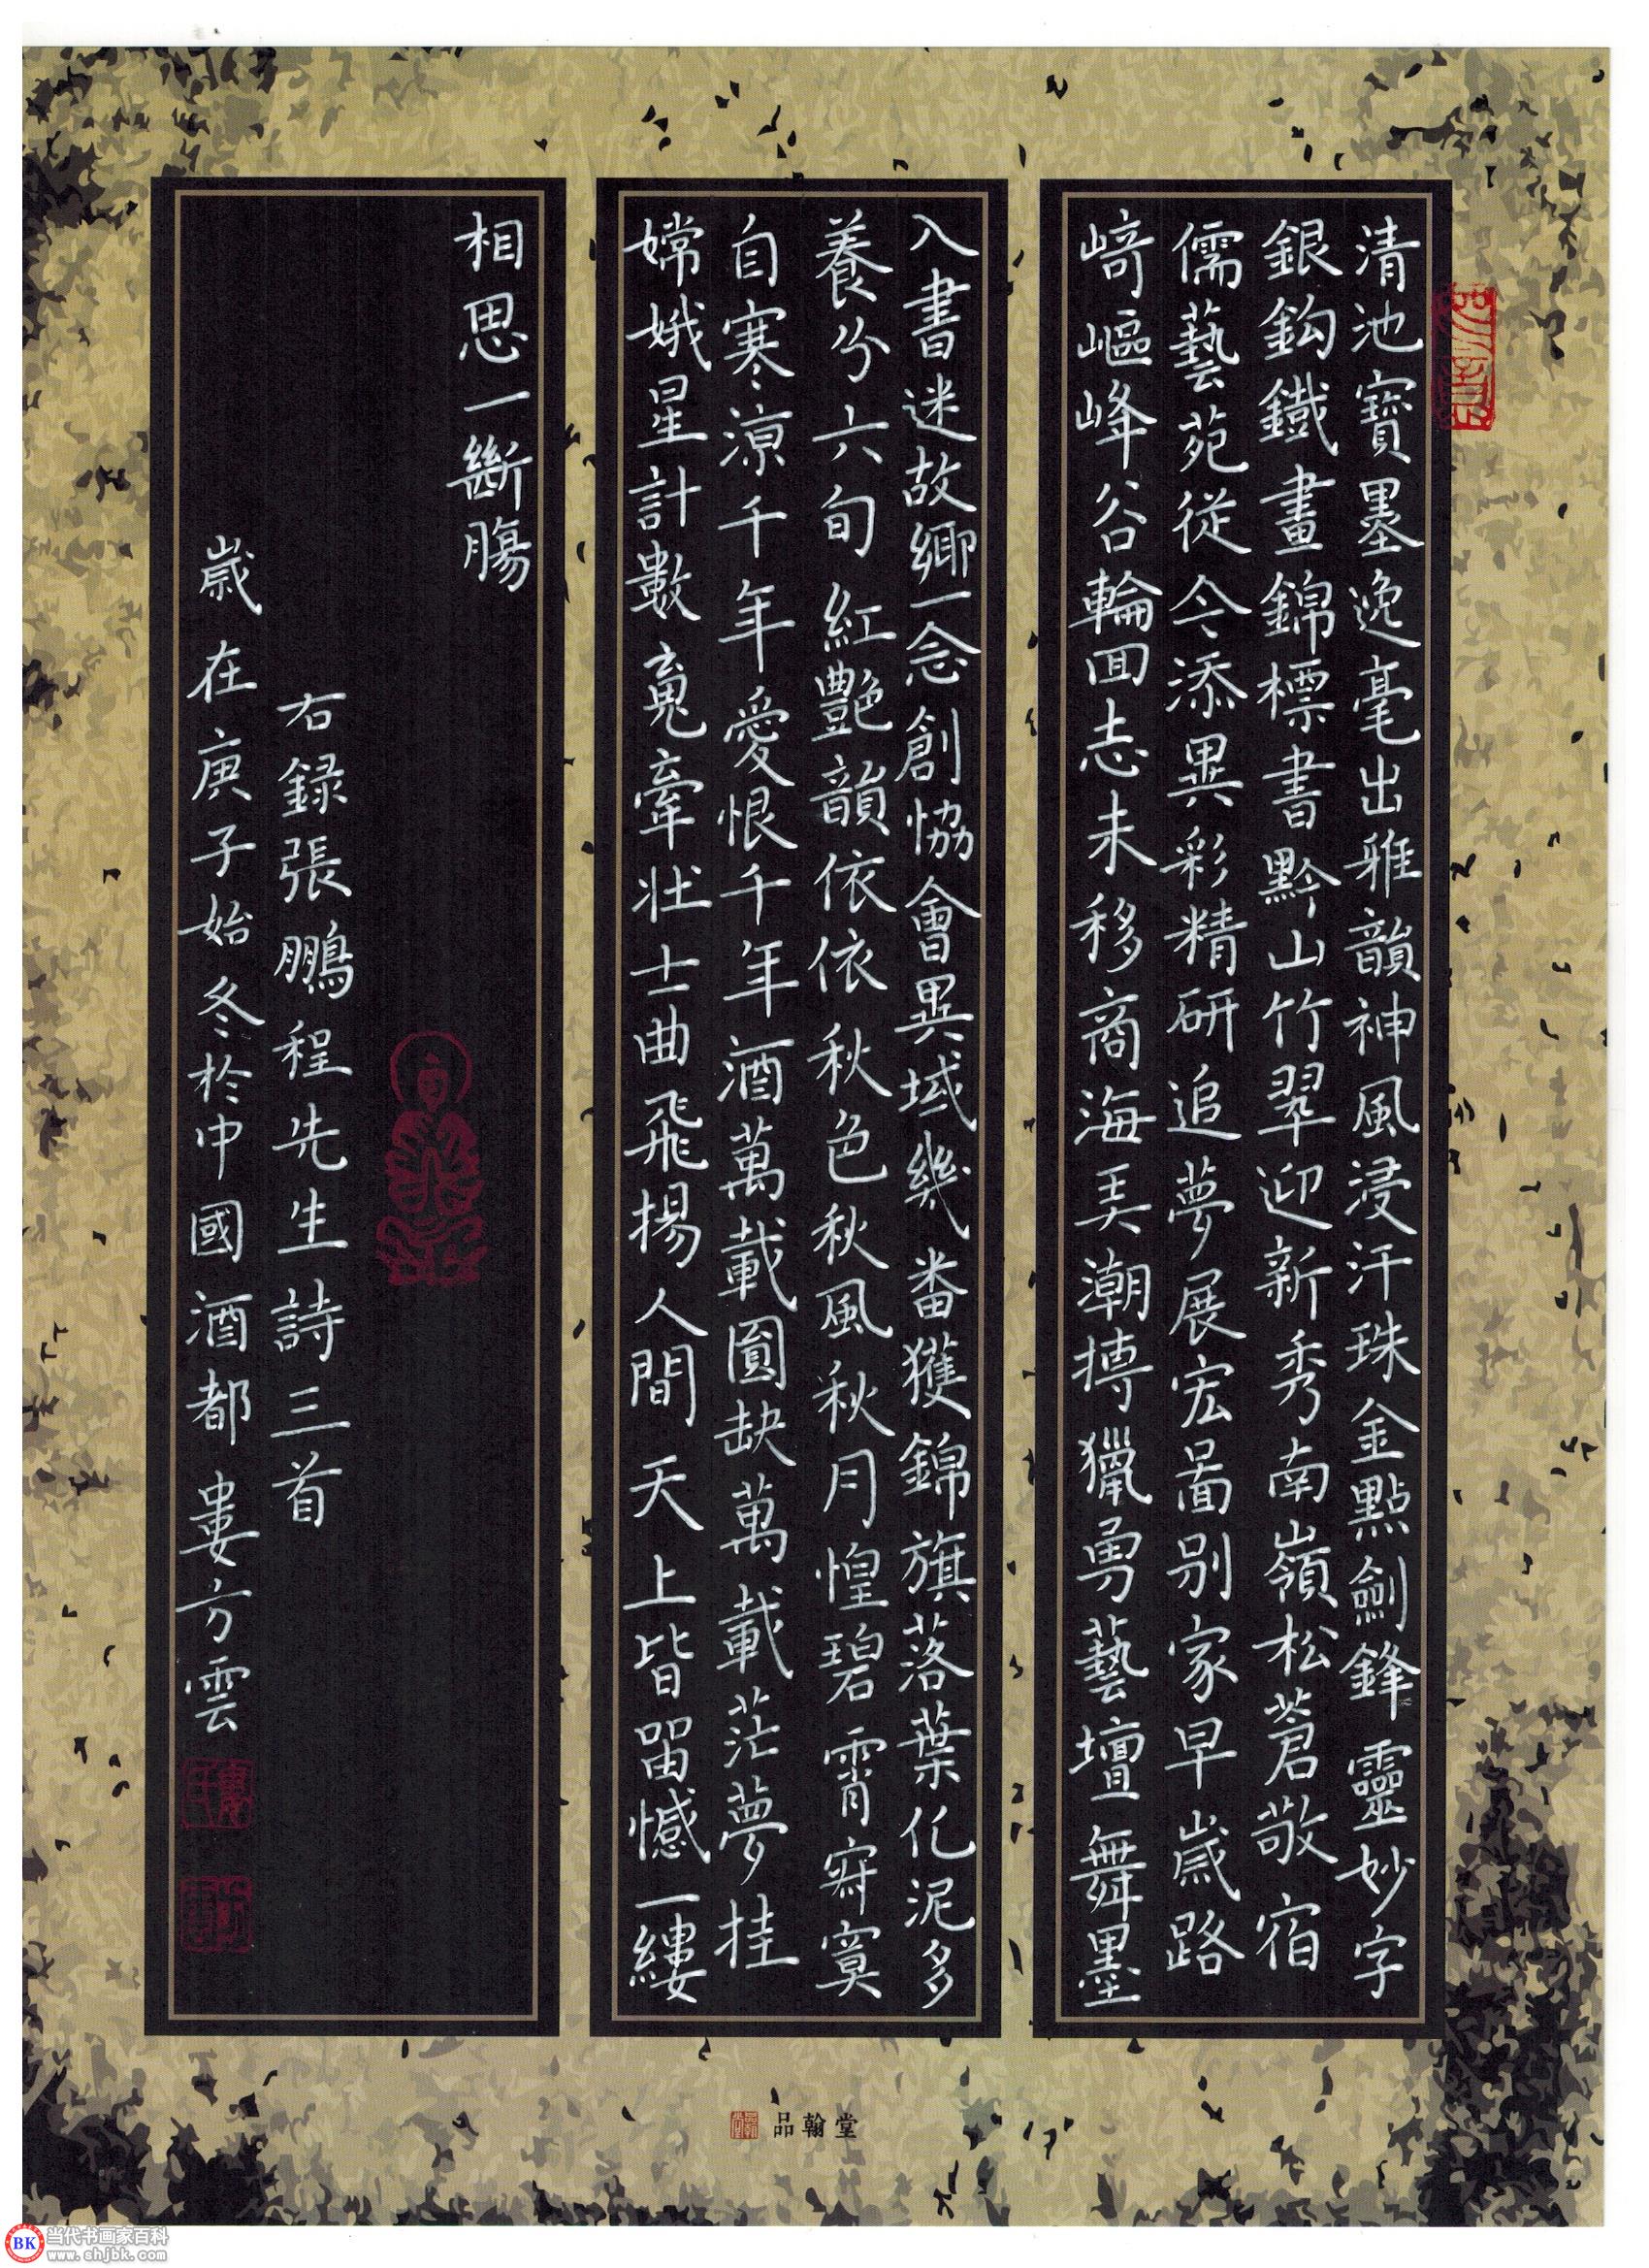 清池寶墨逸毫出雅韻神風浸汗珠金點劍鋒靈妙字
銀鈎鐵畫錦標書黔山竹翠迎新秀南嶺松蒼敬宿
儒藝苑從今添異彩精研追夢展宏圖别家早歲路
崎嶇峰谷輪回志未移商海弄潮搏獵勇藝壇舞墨
入書迷故鄉一念創協會異域幾番獲錦旗落葉化泥多
養分六旬紅艷韻依依秋色秋風秋月惶碧霄寂寞
自寒涼千年愛恨千年酒萬載圓缺萬載茫夢挂
嫦娥星計數魂牽壯士曲飛揚人間天上皆留憾一縷
相思一斷腸
右録張鵬程先生詩三首
歲在庚子始冬於中國酒都婁方雲
品翰堂
BK 当代书画家百科
www.shjbk.com